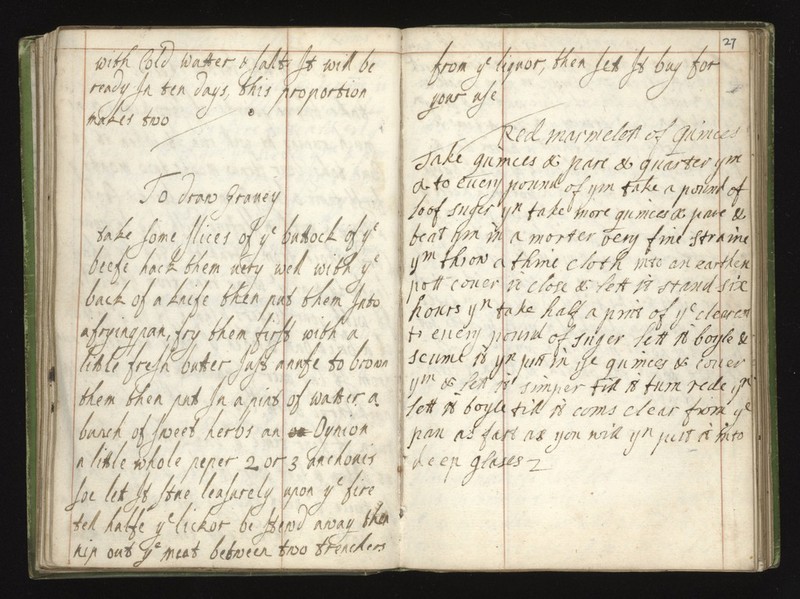 with Cold watter & salt, It will be
ready In ten days, this proportion
makes two
To draw Gravey
take some slices of yͤ buttock of yͤ
beefe hack them very well with yͤ
back of a knife then put them Into
a fryingpan, fry them first with a
little fresh butter Just anufe to brown
them then put In a pint of watter a
bunch of sweet herbs an Oynion
a little whole peper 2 or 3 anchovis
soe let It stue leasurely upon yͤ fire
tell halfe yͤ lickor be stewd away then
nip out yͤ meat between two trenchers
27
from yͤ liquor, then set It buy for
your use
Red marmelett of quinces
Take quinces & pare & quarter ym
& to euery pound of ym take a pound of
loof suger yn take more quinces & pare &
beat ym in a morter very fine straine
ym throw a thine cloth into an earthen
pott couer it close & lett it stand six
hours yn take half a pint of yͤ clearest
to euery pound of suger lett it boyle &
scume it yn putt in yͤ quinces & couer
ym & lett it simper till it turn rede yn
lett it boyle till it coms clear from yͤ
pan as fast as you will yn putt it into
deep glases